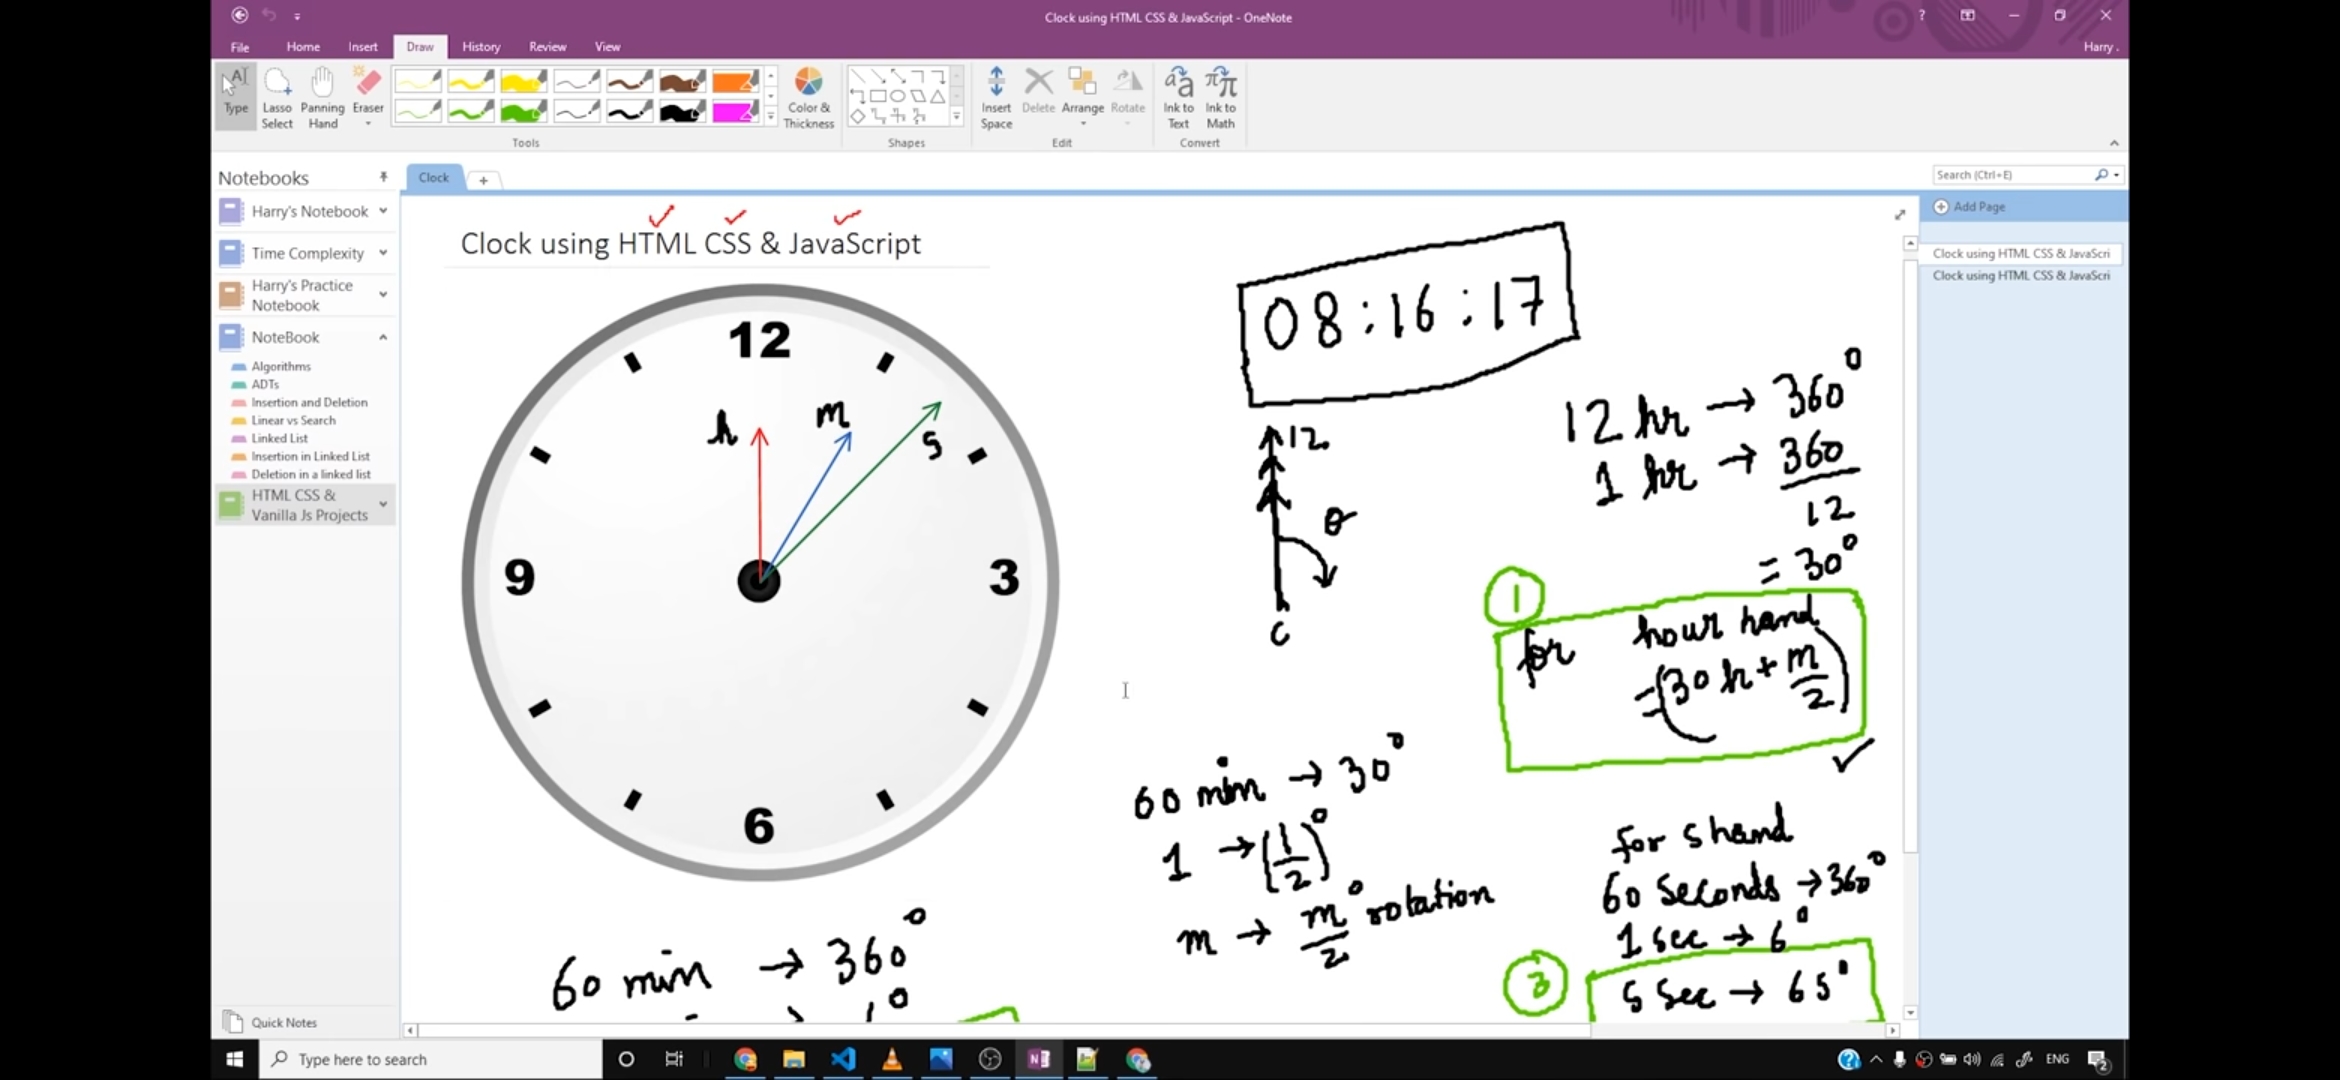 Clock using HTML CSS & JavaScript - OneNote
?
Harry .
File Home Insert Draw History Review View
Type
Lasso Select
Panning Hand
Eraser
Color & Thickness
Insert Space
Delete
Arrange
Rotate
Ink to Text
Ink to Math
Tools
Shapes
Edit
Convert
Notebooks
Harry's Notebook
Time Complexity
Harry's Practice
Notebook
NoteBook
Algorithms
ADTs
Insertion and Deletion
Linear vs Search
Linked List
Insertion in Linked List
Deletion in a linked list
HTML CSS &
Vanilla Js Projects
Quick Notes
Clock +
Search (Ctrl+E)
Add Page
Clock using HTML CSS & JavaScri
Clock using HTML CSS & JavaScri
Clock using HTML CSS & JavaScript
12
h m s
9 3
6
08:16:17
12
θ
C
12 hr → 360°
1 hr → 360/12
= 30°
1
for hour hand
=(30h+m/2)
60 min → 30°
1 → (1/2)°
m → m/2° rotation
for s hand
60 seconds → 360°
1 sec → 6°
3
s sec → 6s°
60 min → 360°
Type here to search
ENG
2